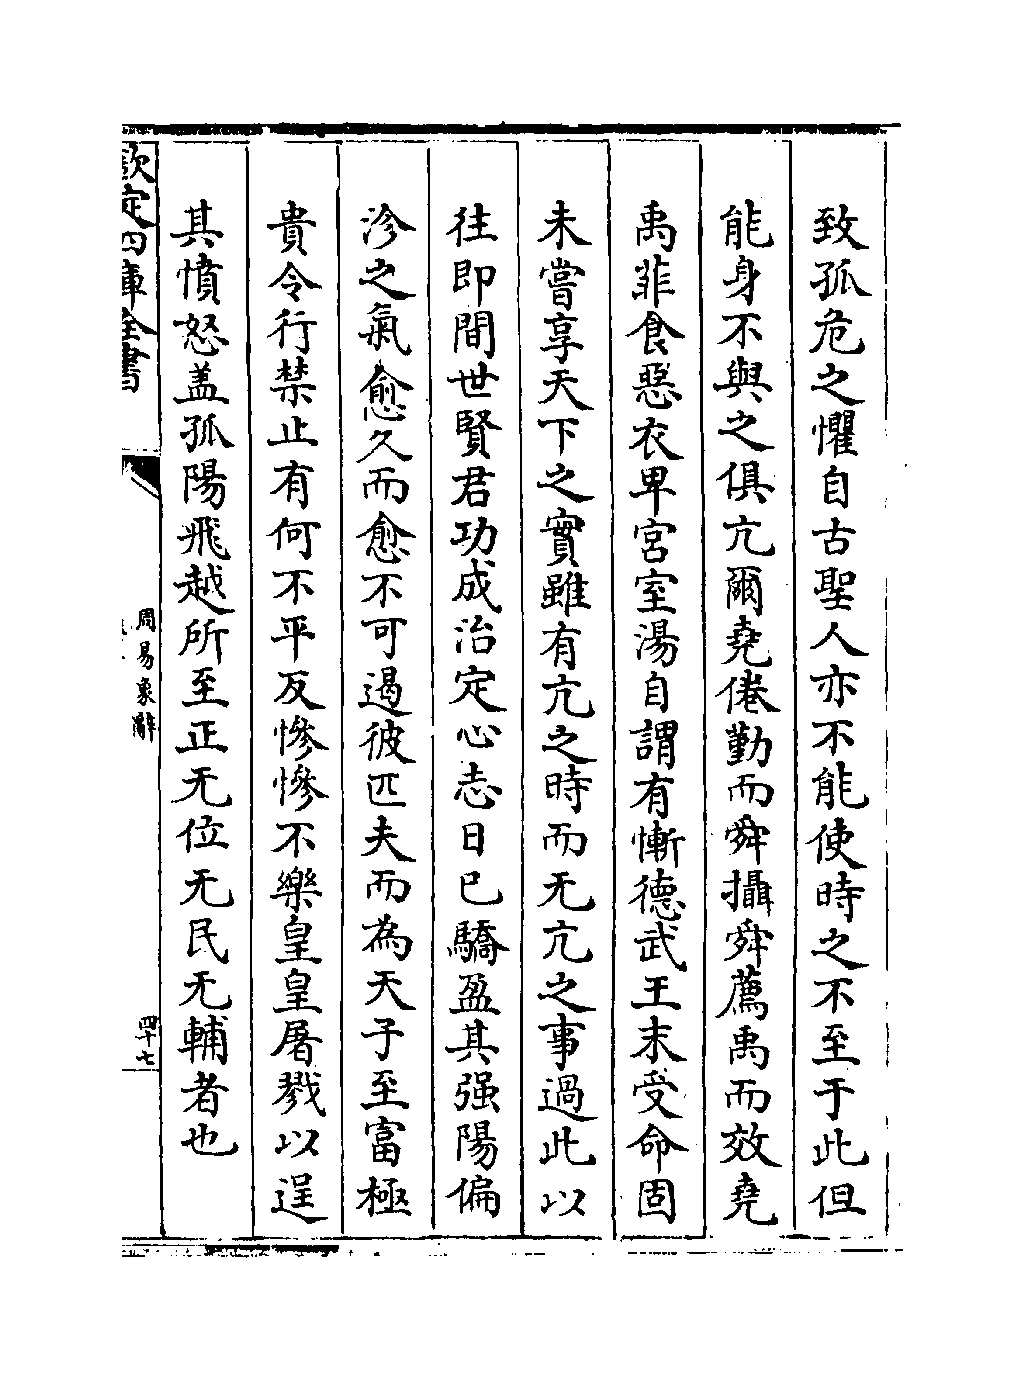 致孤危之懼自古聖人亦不能使時之不至于此但
能身不與之俱亢爾堯倦勤而舜攝舜薦禹而效堯
禹菲食惡衣卑宮室湯自謂有慚德武王末受命固
未嘗享天下之實雖有亢之時而无亢之事過此以
往即間世賢君功成治定心志日已驕盈其强陽偏
沴之氣愈久而愈不可遏彼匹夫而為天子至富極
貴令行禁止有何不平反慘慘不樂皇皇屠戮以逞
其憤怒盖孤陽飛越所至正无位无民无輔者也
欽定四庫全書
周易象辭
四十七